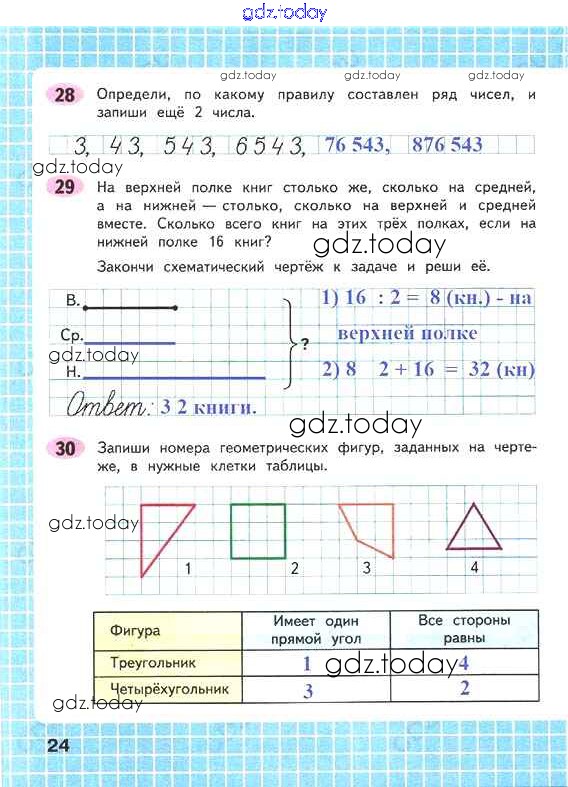 gdz.today
gdz.today gdz.today gdz.today
28 Определи, по какому правилу составлен ряд чисел, и
запиши ещё 2 числа.
3, 43, 543, 6543, 76 543, 876 543
gdz.today
29 На верхней полке книг столько же, сколько на средней,
а на нижней — столько, сколько на верхней и средней
вместе. Сколько всего книг на этих трёх полках, если на
нижней полке 16 книг?
gdz.today
Закончи схематический чертёж к задаче и реши её.
В. 1) 16 : 2 = 8 (кн.) - на
Ср. ? верхней полке
gdz.today
Н. 2) 8 2 + 16 = 32 (кн)
Ответ: 3 2 книги.
gdz.today
30 Запиши номера геометрических фигур, заданных на черте-
же, в нужные клетки таблицы.
gdz.today
1 2 3 4
Фигура Имеет один прямой угол Все стороны равны
Треугольник 1 4
gdz.today
Четырёхугольник 3 2
gdz.today
24